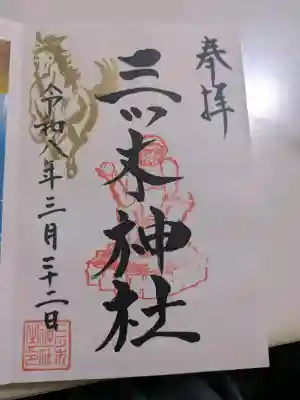 奉拝
三ツ木神社
令和八年三月二十二日